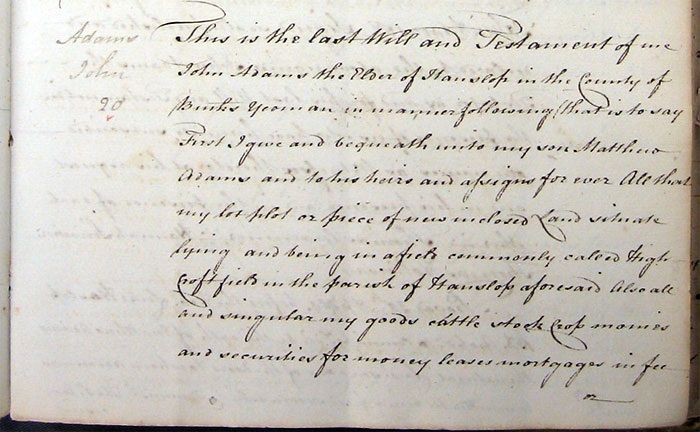 Adams
John
20
This is the last Will and Testament of me
John Adams the Elder of Hanslop in the County of
Bucks Yeoman in manner following (that is to say
First I give and bequeath unto my son Matthew
Adams and to his heirs and assigns for ever All that
my lot plot or piece of new inclosed Land situate
lying and being in a field commonly called High
Croft field in the parish of Hanslop aforesaid Also all
and singular my goods cattle stock Crop monies
and securities for money leases mortgages in fee
or